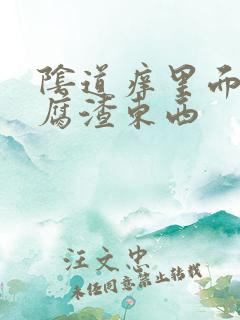 陰道痒里而
腐渣东西
汪文忠
未经同意禁止转载